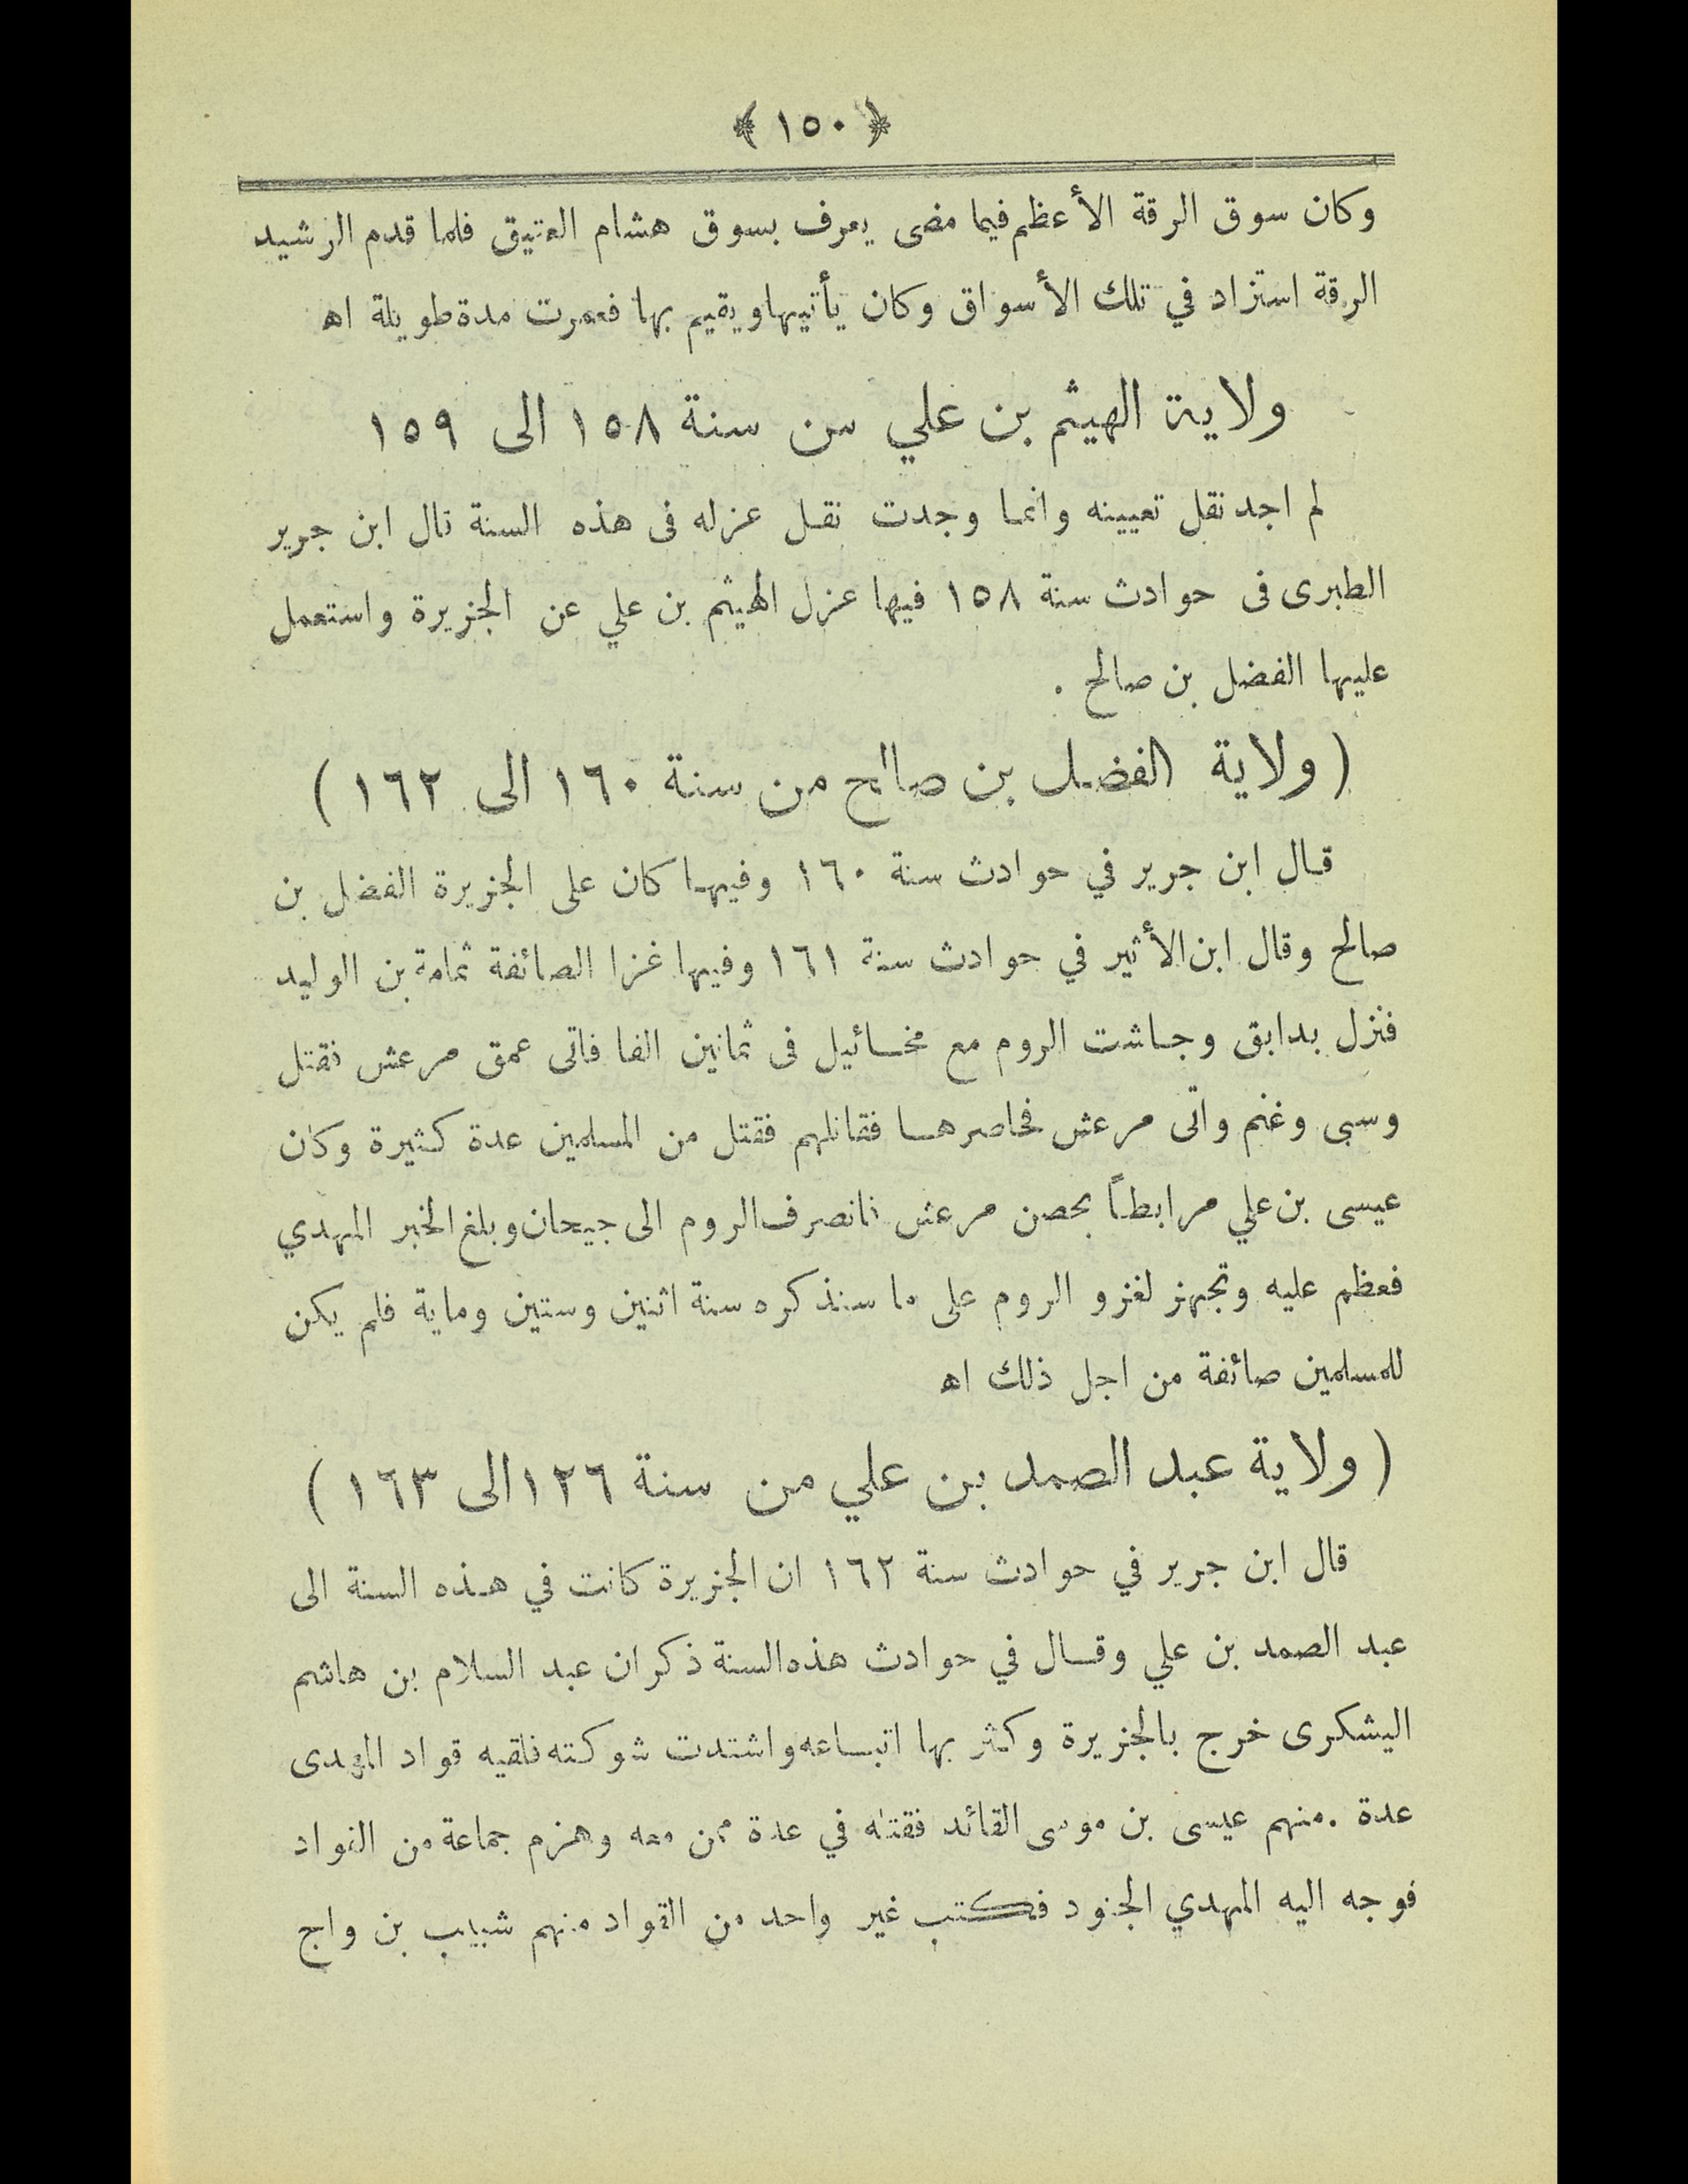 ﴿ ١٥٠ ﴾
وكان سوق الرقة الأعظم فيما مضى يعرف بسوق هشام العتيق فلما قدم الرشيد
الرقة استزاد في تلك الأسواق وكان يأتيها ويقيم بها فعمرت مدة طويلة اه
ولاية الهيثم بن علي من سنة ١٥٨ الى ١٥٩
لم اجد نقل تعيينه وانما وجدت نقل عزله فى هذه السنة قال ابن جرير
الطبرى فى حوادث سنة ١٥٨ فيها عزل الهيثم بن علي عن الجزيرة واستعمل
عليها الفضل بن صالح .
( ولاية الفضل بن صالح من سنة ١٦٠ الى ١٦٢ )
قال ابن جرير في حوادث سنة ١٦٠ وفيها كان على الجزيرة الفضل بن
صالح وقال ابن الأثير في حوادث سنة ١٦١ وفيها غزا الصائفة ثمامة بن الوليد
فنزل بدابق وجاشت الروم مع مخائيل فى ثمانين الفا فاتى عمق مرعش فقتل
وسبى وغنم واتى مرعش فحاصرها فقاتلهم فقتل من المسلمين عدة كثيرة وكان
عيسى بن علي مرابطاً بحصن مرعش فانصرف الروم الى جيحان وبلغ الخبر المهدي
فعظم عليه وتجهز لغزو الروم على ما سنذكره سنة اثنين وستين وماية فلم يكن
للمسلمين صائفة من اجل ذلك اه
( ولاية عبد الصمد بن علي من سنة ١٢٦ الى ١٦٣ )
قال ابن جرير في حوادث سنة ١٦٢ ان الجزيرة كانت في هذه السنة الى
عبد الصمد بن علي وقال في حوادث هذه السنة ذكر ان عبد السلام بن هاشم
اليشكرى خرج بالجزيرة وكثر بها اتباعه واشتدت شوكته فلقيه قواد المهدى
عدة . منهم عيسى بن موسى القائد فقتله في عدة ممن معه وهزم جماعة من القواد
فوجه اليه المهدي الجنود فكتب غير واحد من القواد منهم شبيب بن واج